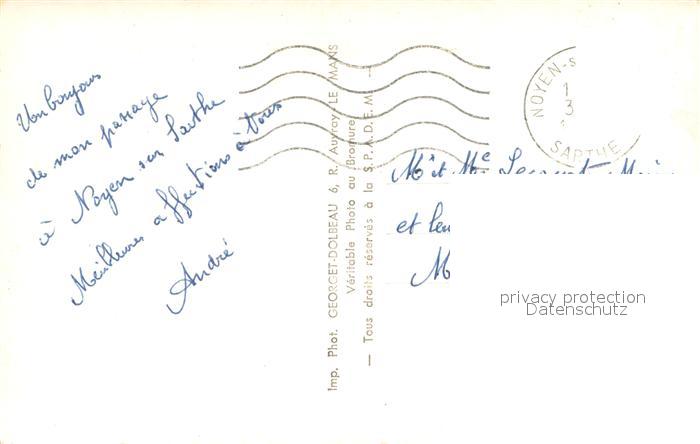 Un bonjour
de mon passage
à Noyen sur Sarthe
Meilleures affections à tous
André
Imp. Phot. GEORGET-DOLBEAU 6, R. Auvray LE MANS
Véritable Photo au Bromure
— Tous droits réservés à la S.P.A.D.E.M. —
NOYEN-S
1
3
SARTHE
Mr et Mme
et leu
M
privacy protection
Datenschutz